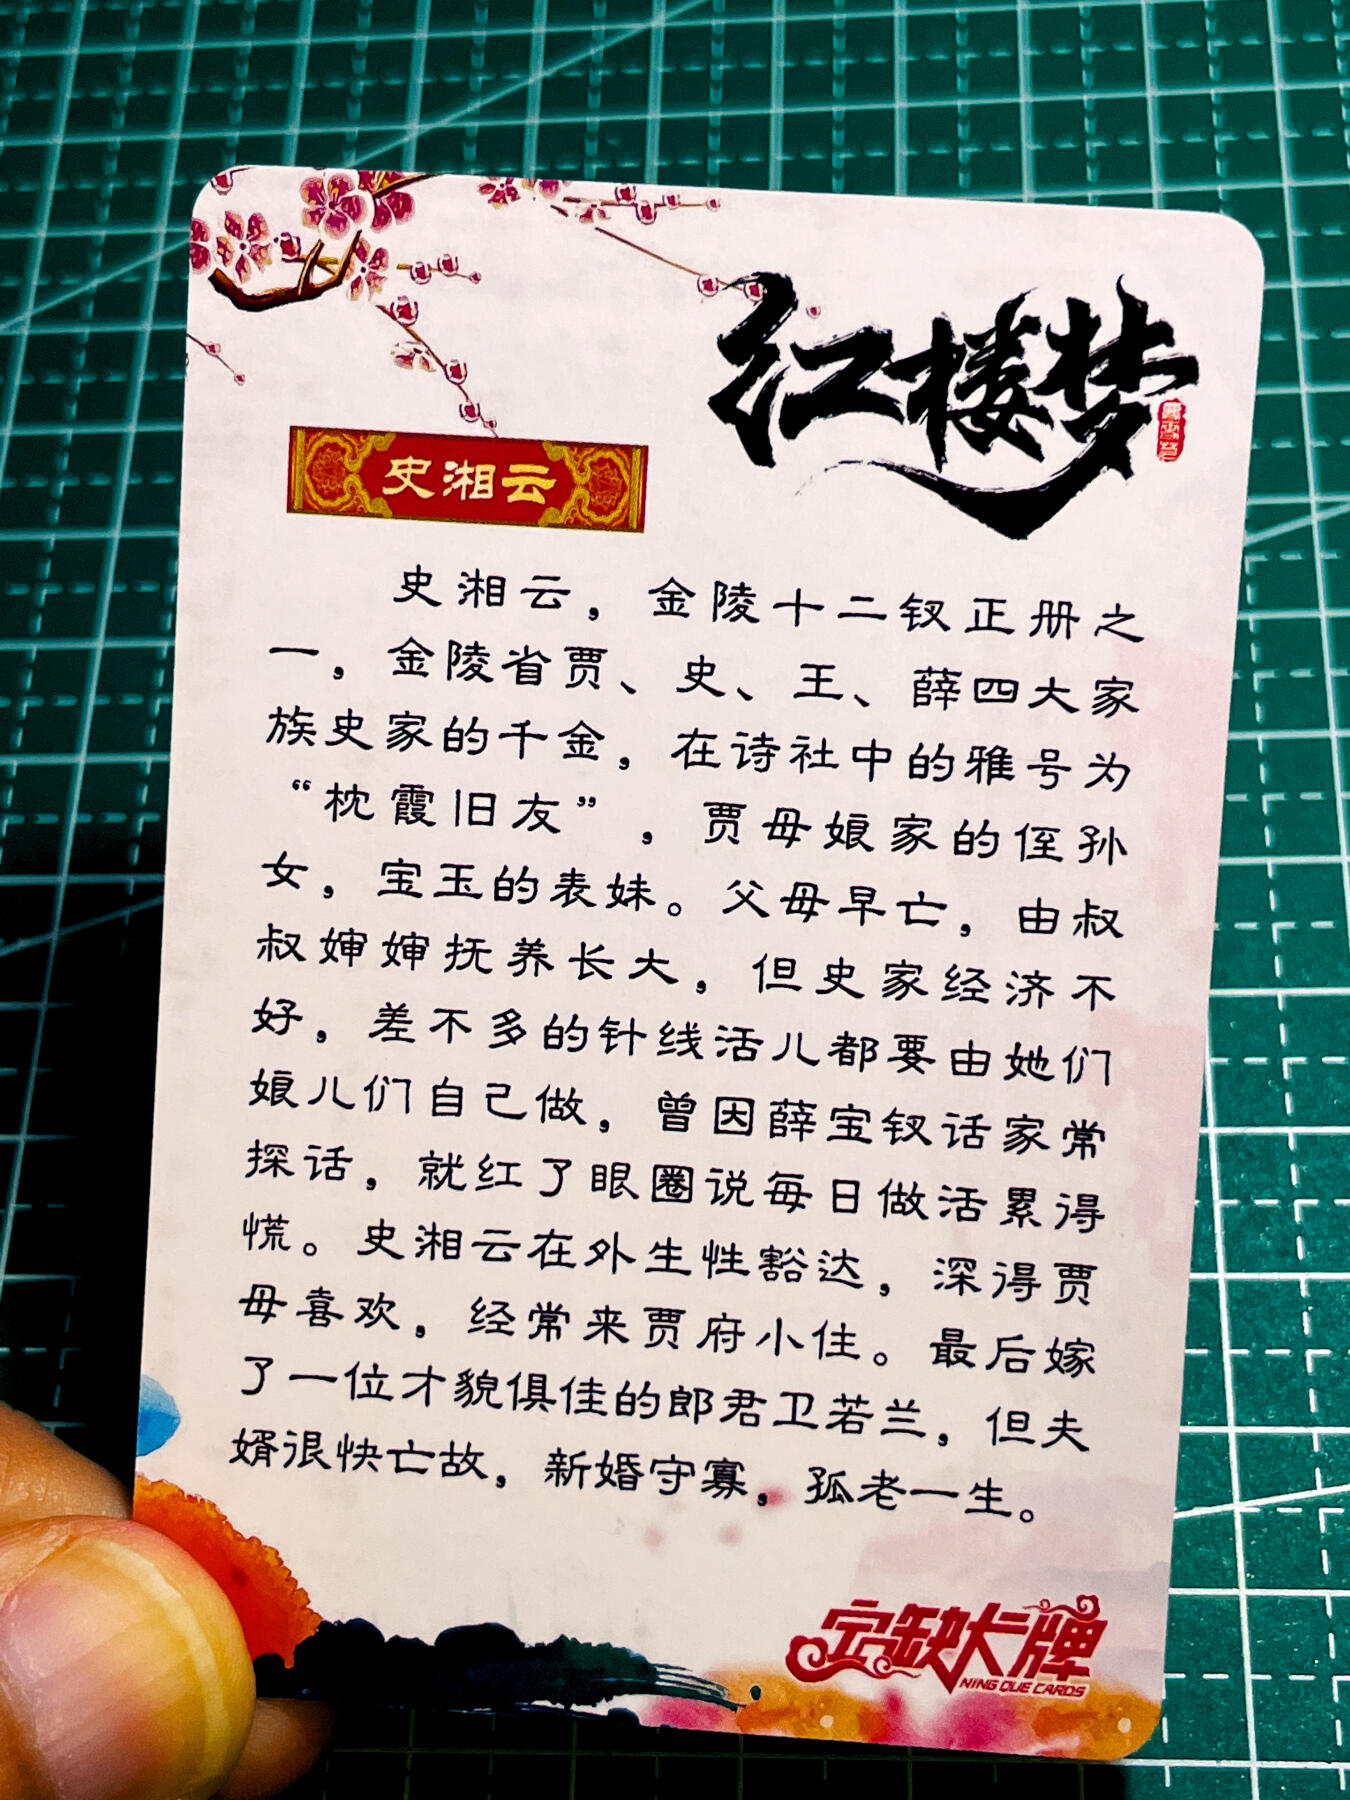 红楼梦
史湘云
史湘云，金陵十二钗正册之
一，金陵省贾、史、王、薛四大家
族史家的千金，在诗社中的雅号为
“枕霞旧友”，贾母娘家的侄孙
女，宝玉的表妹。父母早亡，由叔
叔婶婶抚养长大，但史家经济不
好，差不多的针线活儿都要由她们
娘儿们自己做，曾因薛宝钗话家常
探话，就红了眼圈说每日做活累得
慌。史湘云在外生性豁达，深得贾
母喜欢，经常来贾府小住。最后嫁
了一位才貌俱佳的郎君卫若兰，但夫
婿很快亡故，新婚守寡，孤老一生。
宁缺大牌
NING QUE CARDS